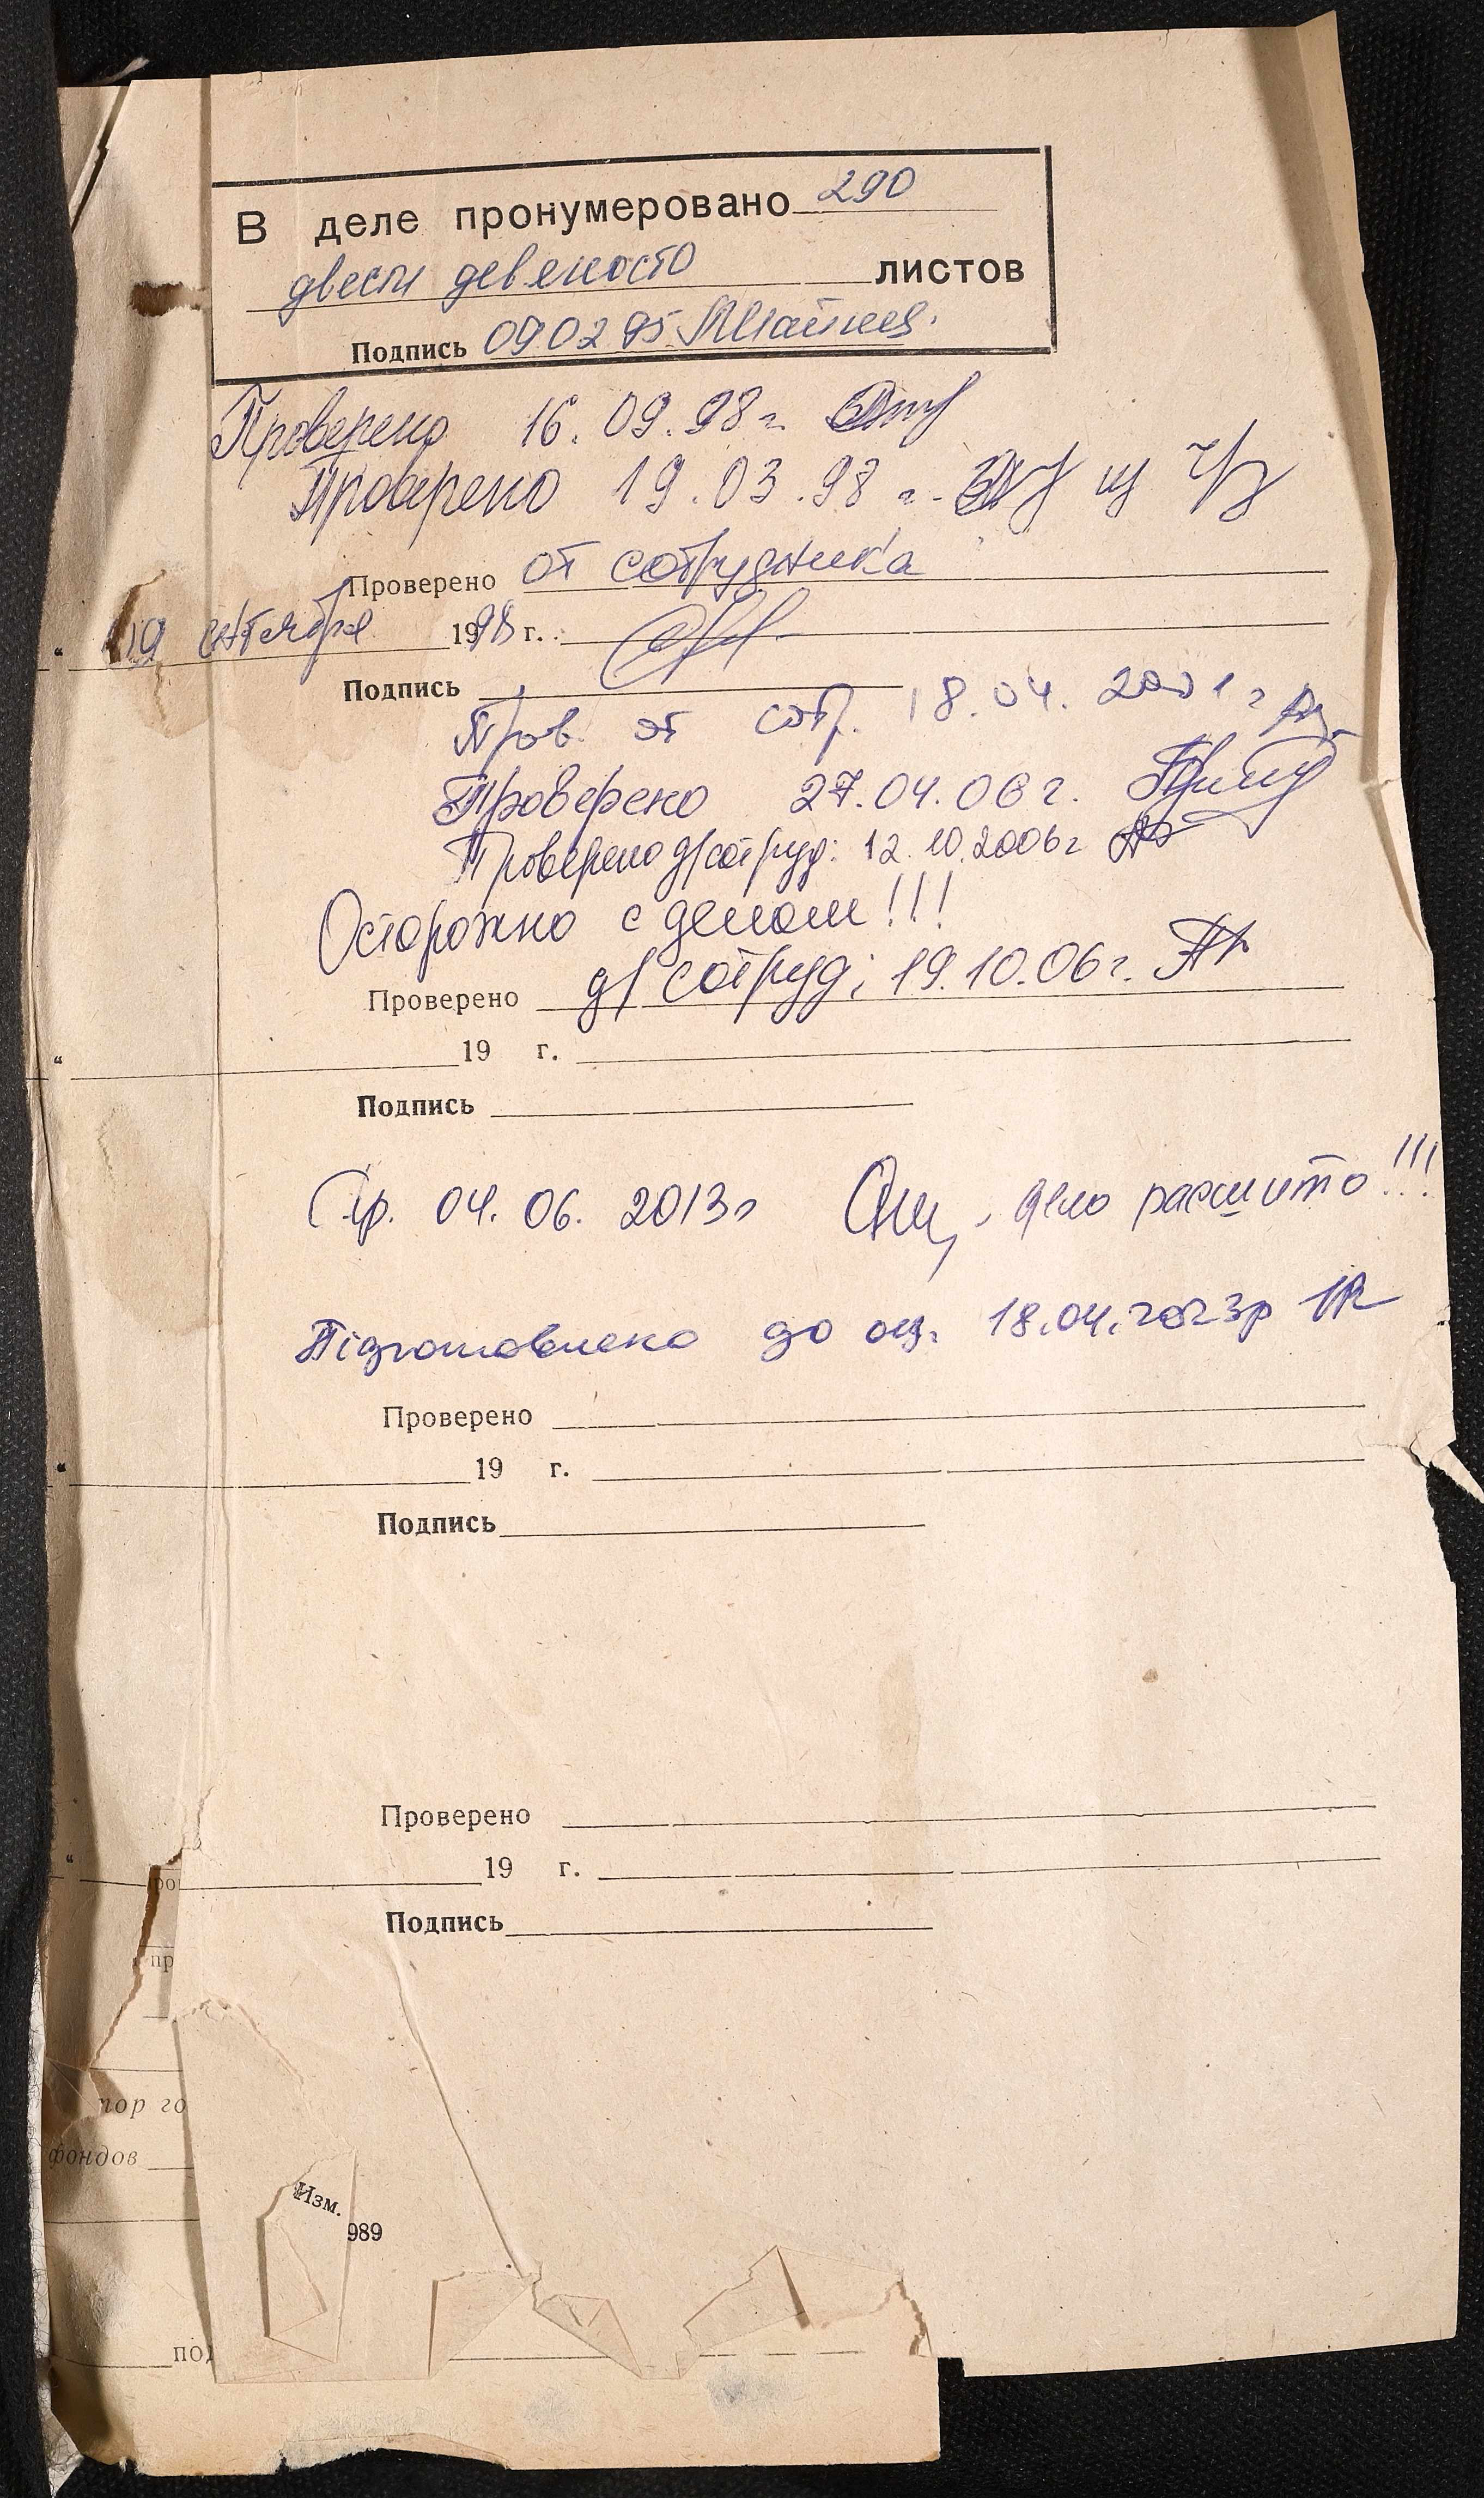 В деле пронумеровано 290
двести девяносто листов
Подпись 090295
Проверено 16.09.98 г.
Проверено 19.03.98 г.
Проверено от сотрудника
" 19 1998 г.
Подпись
Пров. от сотр. 18.04.2001 г
Проверено 27.04.06 г.
Проверено д/сотруд: 12.10.2006 г
Осторожно с делом!!!
Проверено д/сотруд; 19.10.06 г.
" 19 г.
Подпись
Пр. 04.06.2013г дело расшито!!!
Підготовлено до оц. 18.04.2023р
Проверено
" 19 г.
Подпись
Проверено
" 19 г.
ро
Подпись
пр
пор го
фондов
Изм.
989
под